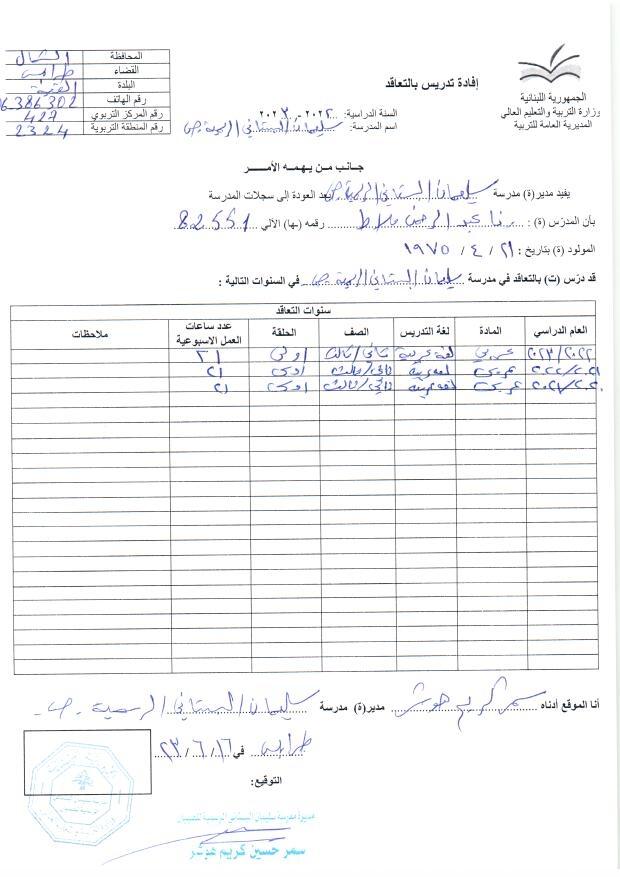 إفادة تدريس بالتعاقد
الجمهورية اللبنانية
وزارة التربية والتعليم العالي
المديرية العامة للتربية
المحافظة الشمال
القضاء طرابلس
البلدة القبة
رقم الهاتف 06.386302
رقم المركز التربوي 427
رقم المنطقة التربوية 2324
السنة الدراسية: ٢٠٢٢-٢٠٢٣
اسم المدرسة: سليمان البستاني الرسمية ص
جانب من يهمه الأمر
يفيد مدير(ة) مدرسة سليمان البستاني الرسمية ص بعد العودة إلى سجلات المدرسة
بأن المدرّس (ة) : رنا عبد الرحمن ملاط رقمه (ـها) الآلي 82551
المولود (ة) بتاريخ : ٢١ / ٤ / ١٩٧٥
قد درّس (ت) بالتعاقد في مدرسة سليمان البستاني الرسمية ص في السنوات التالية :
سنوات التعاقد
العام الدراسي المادة لغة التدريس الصف الحلقة عدد ساعات العمل الاسبوعية ملاحظات
٢٠٢٢/٢٠٢٣ عربي لغة عربية ثاني/ثالث اولى ٢١
٢٠٢١/٢٠٢٢ عربي لغة عربية ثاني/ثالث اولى ٢١
٢٠٢٠/٢٠٢١ عربي لغة عربية ثاني/ثالث اولى ٢١
أنا الموقع أدناه سمر كريم هوشر مدير(ة) مدرسة سليمان البستاني الرسمية ص
طرابلس في ١٦/٦/٢٣
التوقيع:
مديرة مدرسة سليمان البستاني الرسمية للصبيان
سمر حسين كريم هوشر